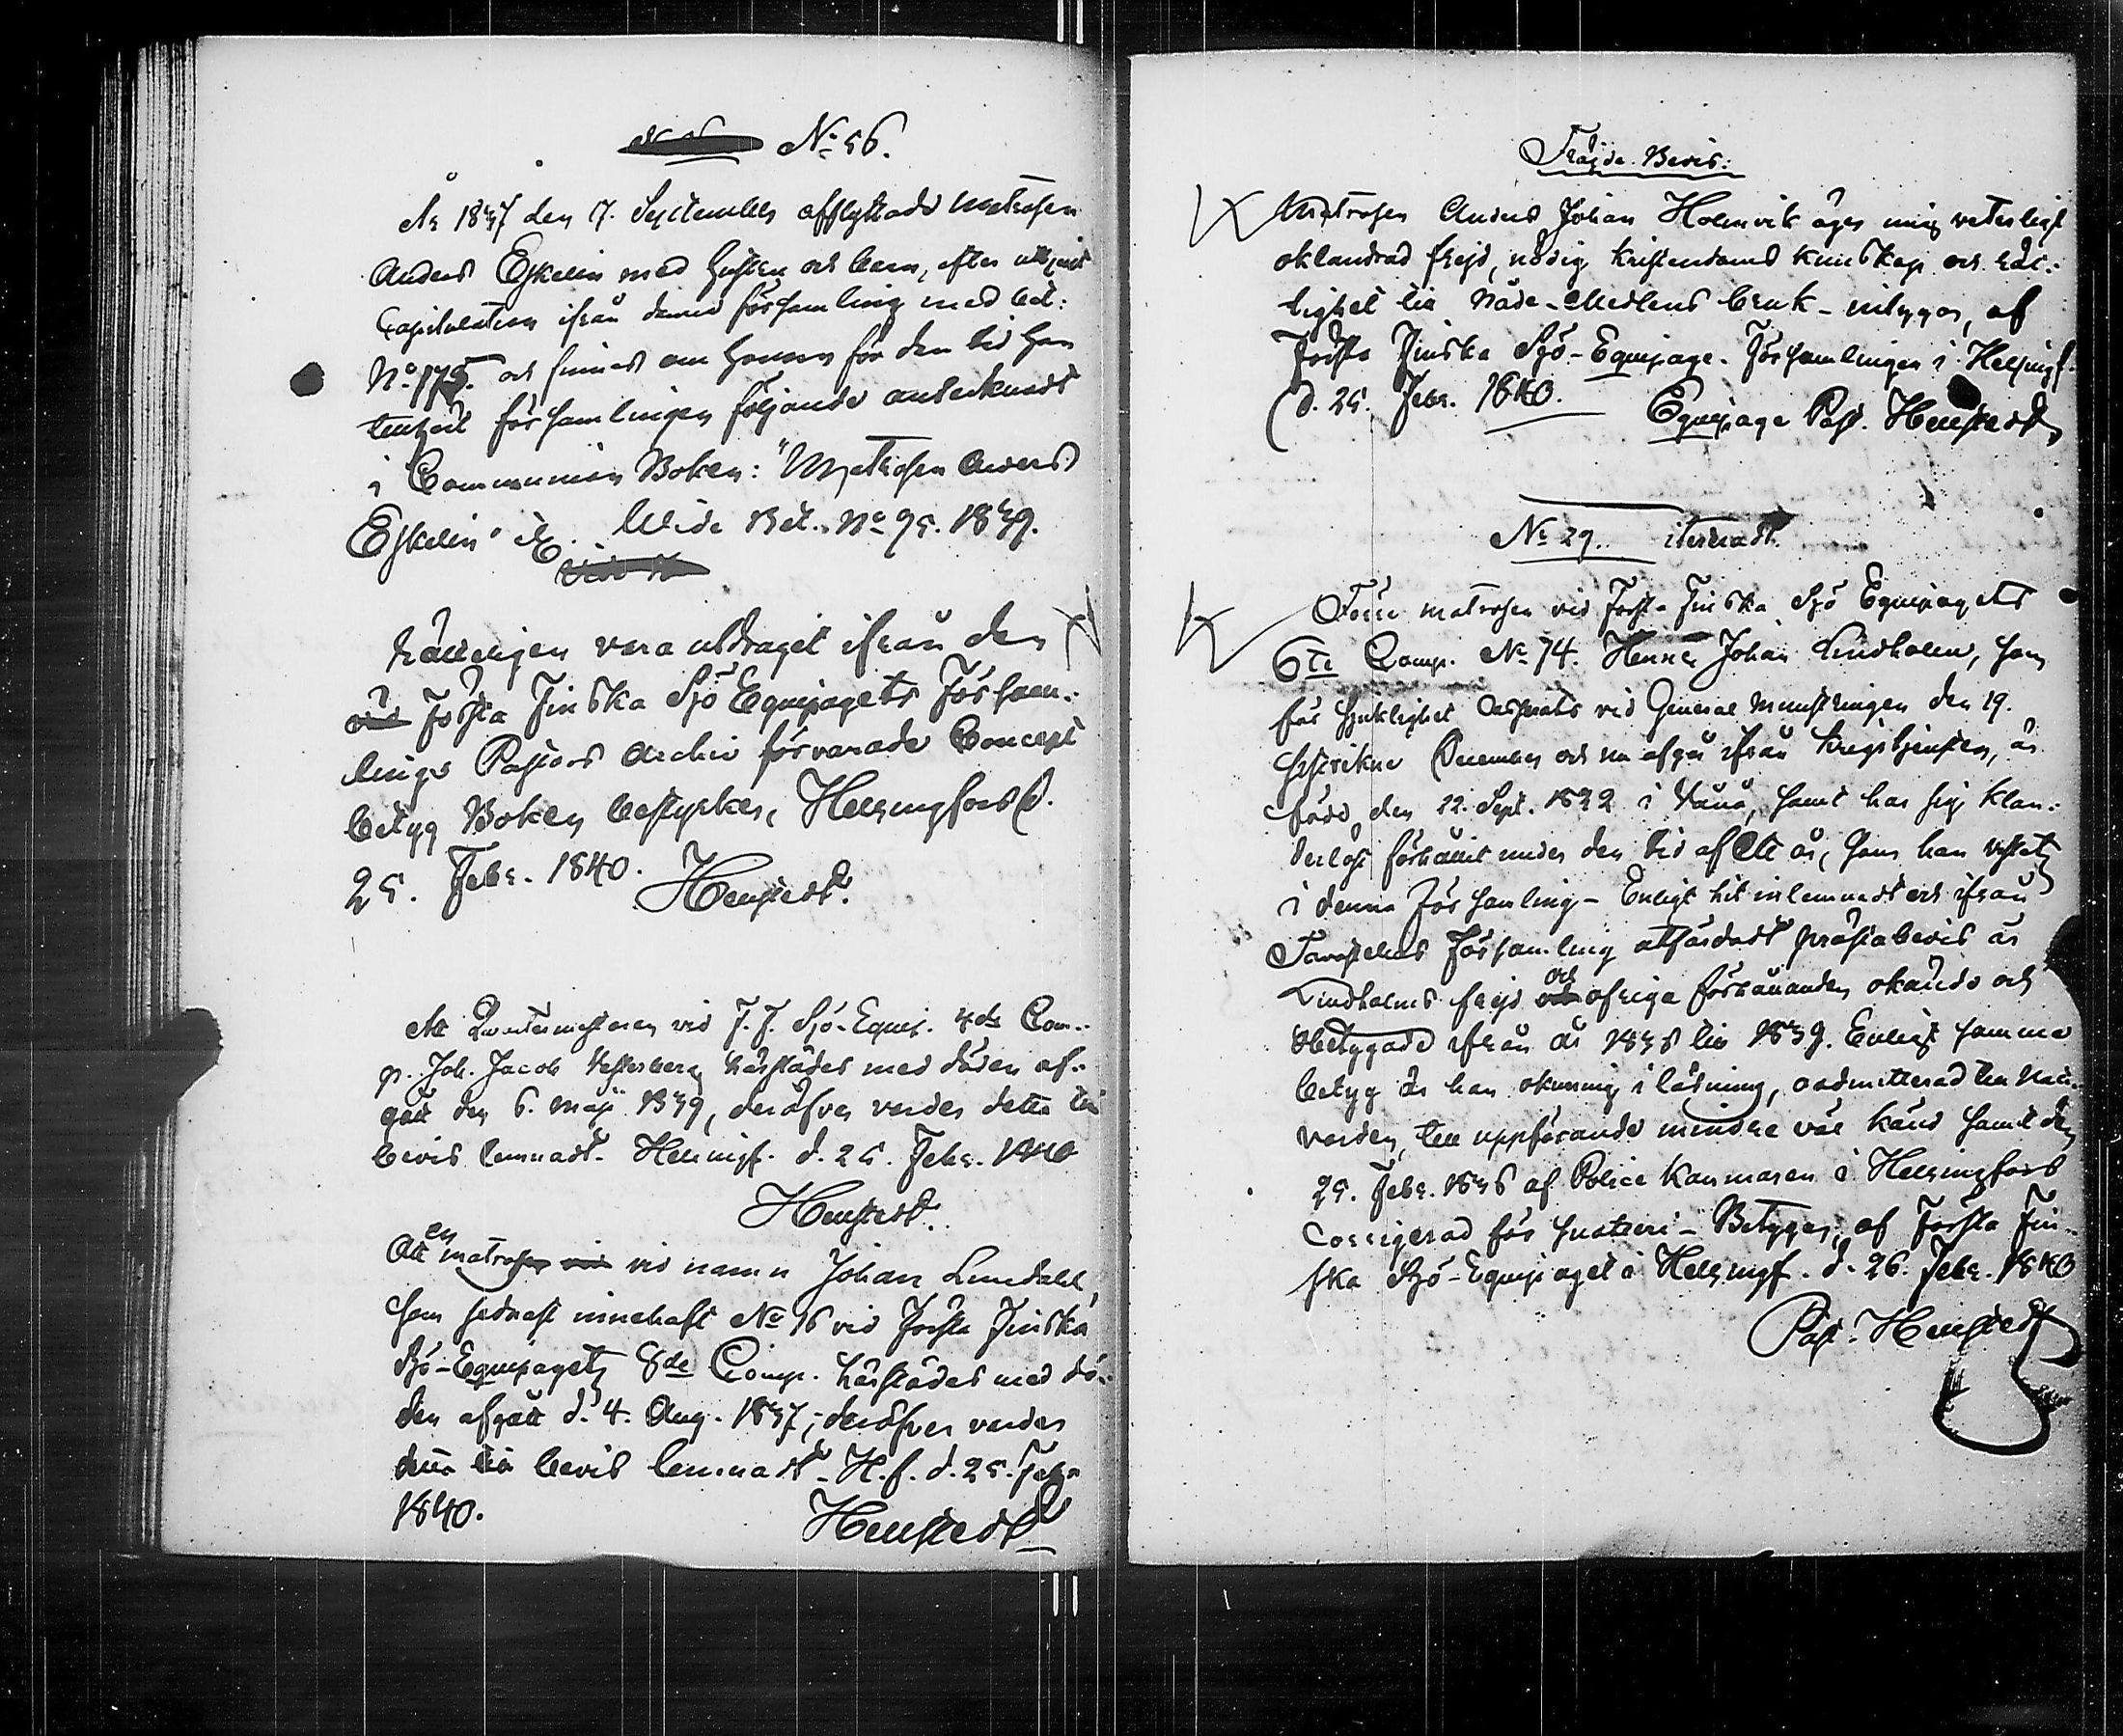 No 56.
År 1837 den 7. September afflyttade Matrosen
Anders Eskelin med hustru och barn, efter uttjent
Capitulation ifrån denna församling med bet:
No 175. och finnes om honom för den tid han
tenhört församlingen följande antecknadt
i Communion Boken: "Matrosen Anders
Eskelin" &c. Wide Bet. No 95. 1839.
vara utdraget ifrån den
vid Första Finska Sjö Equipagets Försam-
lings Pastors Archiv förvarade Concept
betyg Boken bestyrker, Helsingfors d.
25. Febr. 1840. Henstedt.
Att Quartermästaren vid F. F. Sjö-Equip. 4de Com-
p. Joh. Jacob Vesterberg härstädes med döden af-
gått den 6. Maji 1839, deröfver varder detta till
bevis lemnadt. Helsingf. d. 25. Febr. 1840
Henstedt.
Att en matrosen vid vid namn Johan Lundahl,
som sednast innehaft No 16 vid Första Finska
Sjö-Equipagets 8de Comp. härstädes med dö-
den afgått d. 4. Aug. 1837; deröfver varder
detta till bevis lemnadt. H.f. d. 25. Febr
1840. Henstedt
Fräjde Bevis:
Matrosen Anders Johan Holmvik äger mig veterligt
oklandrad frejd, nödig kristendoms kunskap och rät-
tighet till Nåde-Medlens bruk - intygar, af
Första Finska Sjö-Equipage-Församlingen i Helsingf.
d. 25. Febr. 1840. Equipage Past. Henstedt
No 29. itereradt.
Förre matrosen vid Första Finska Sjö Equipagets
6te Comp. No 74. Henric Johan Lindholm, som
för sjuklighet casserats vid General Munstringen den 19.
sistvikne December och nu afgår ifrån Krigstjensten, är
född den 22. Sept. 1822 i Vånå, samt har sig klan-
derlöst förhållit under den tid af ett år, som han vistats
i denna Församling - Enligt hit inlemnadt och ifrån
Tavastehus Församling utfärdadt prästabevis är
Lindholms frejd och och öfriga förhållanden okända och
obetyggade ifrån år 1836 till 1839. Enligt samma
betyg är han okunnig i läsning, oadmitterad till Natt-
varden, till uppförande mindre väl känd samt den
25. Febr. 1836 af Police Kammaren i Helsingfors
corrigerad för snatteri - Betygar, af Första Fin-
ska Sjö-Equipaget i Helsingf. d. 26. Febr. 1840
Past. Henstedt